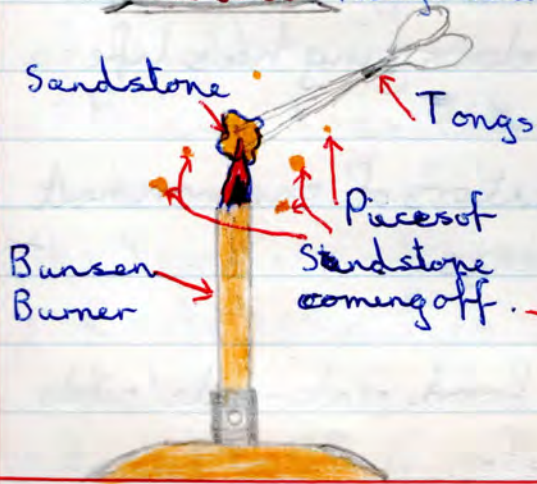 Sandstone
Tongs
Pieces of
Sandstone
coming off.
Bunsen
Burner